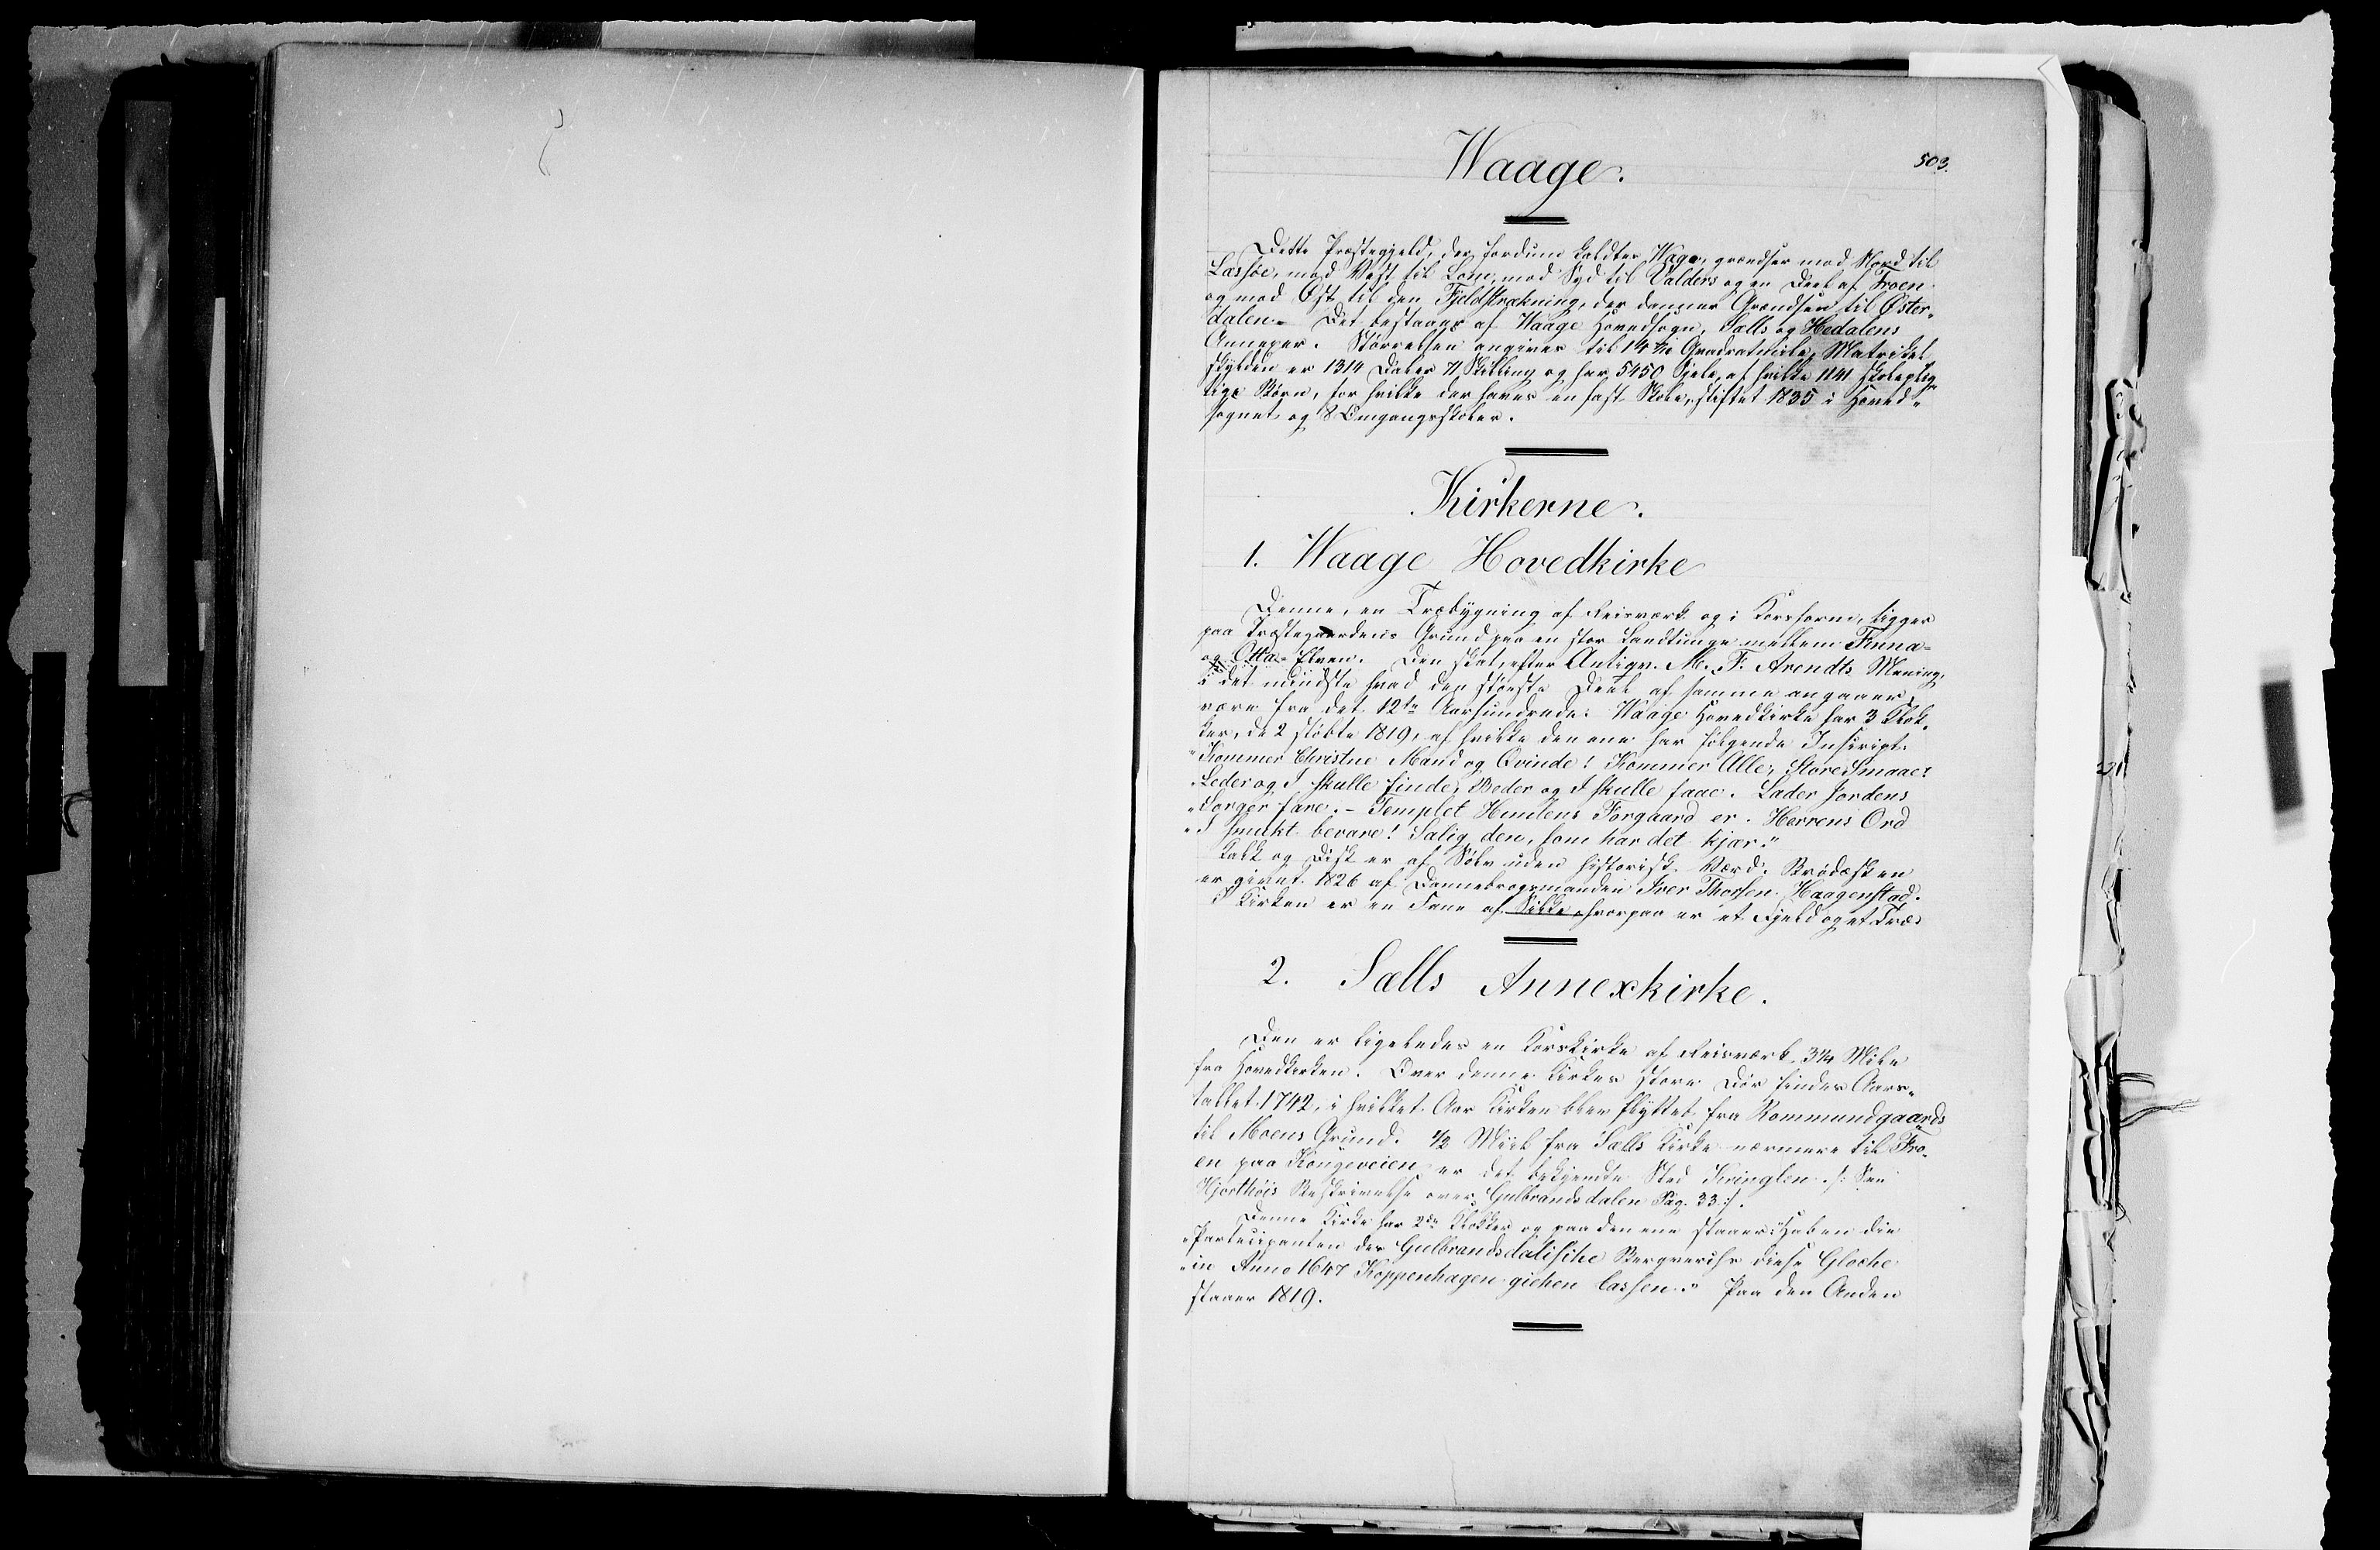 503.
Waage.
Dette Præstegjeld, der fordum kaldtes Wage, grændser mod Nord til
Lessøe, mod Vest til Lom, mod Syd til Valders og en Deel af Froen
og mod Øst til den Fjeldstrækning, der danner Grændsen til Øster-
dalen. Det bestaaer af Waage Hovedsogn, Sælls og Hedalens
Annexer. Størrelsen angives til 14 Qvadratmile, Matrikel
skylden er 1314 Daler 71 Skilling og har 5450 Sjele, af hvilke 1141 skoleplig-
tige Børn, for hvilke der haves en fast Skole, stiftet 1835 i Hoved-
sognet og 8 Omgangsskoler.
Kirkerne.
1. Waage Hovedkirke
Denne, en Træbygning af Reisværk og i Korsform, ligger
paa Præstegaardens Grund paa en stor Landtunge mellem Finna-
og Otta-Elven. Den skal, efter Antiqv. M. F. Arendts Mening,
i det mindste hvad den største Deel af samme angaaer,
være fra det 12te Aarhundrede. Waage Hovedkirke har 3 Klok-
ker, de 2 støbte 1819, af hvilke den ene har følgende Inscript.
"Kommer Christne Mand og Qvinde! Kommer Alle, Store Smaae!
"Leder og I skulle finde, Beder og I skulle faae. Lader Jordens
"Sorger fare. - Templet Himlens Forgaard er. Herrens Ord
"I smukt bevare! Salig den, som har det kjær."
Kalk og Disk er af Sølv uden historisk Værd. Brødæsken
er givet 1826 af Dannebrogsmanden Iver Thorsen Haagenstad.
I Kirken er en Fane af Silke, hvorpaa er et Fjeld og et Træ.
2. Sælls Annexkirke.
Den er ligeledes en Korskirke af Reisværk 3 1/4 Mile
fra Hovedkirken. Over denne Kirkes store Dør findes Aars-
tallet 1742, i hvilket Aar Kirken blev flyttet fra Rommundgaards
til Moens Grund. 1/2 Miil fra Sælls Kirke nærmere til Fro-
en paa Kongeveien er det bekjendte Sted Kringlen /: See
Hjorthøis Beskrivelse over Gulbrandsdalen Pag. 33 :/.
Denne Kirke har 2de Klokker og paa den ene staaer: "Haben die
"Participanten der Gulbrandsdalische Bergwerchs diese Gloche
"in Anno 1647 Koppenhagen giehen lassen." Paa den Anden
staaer 1819.